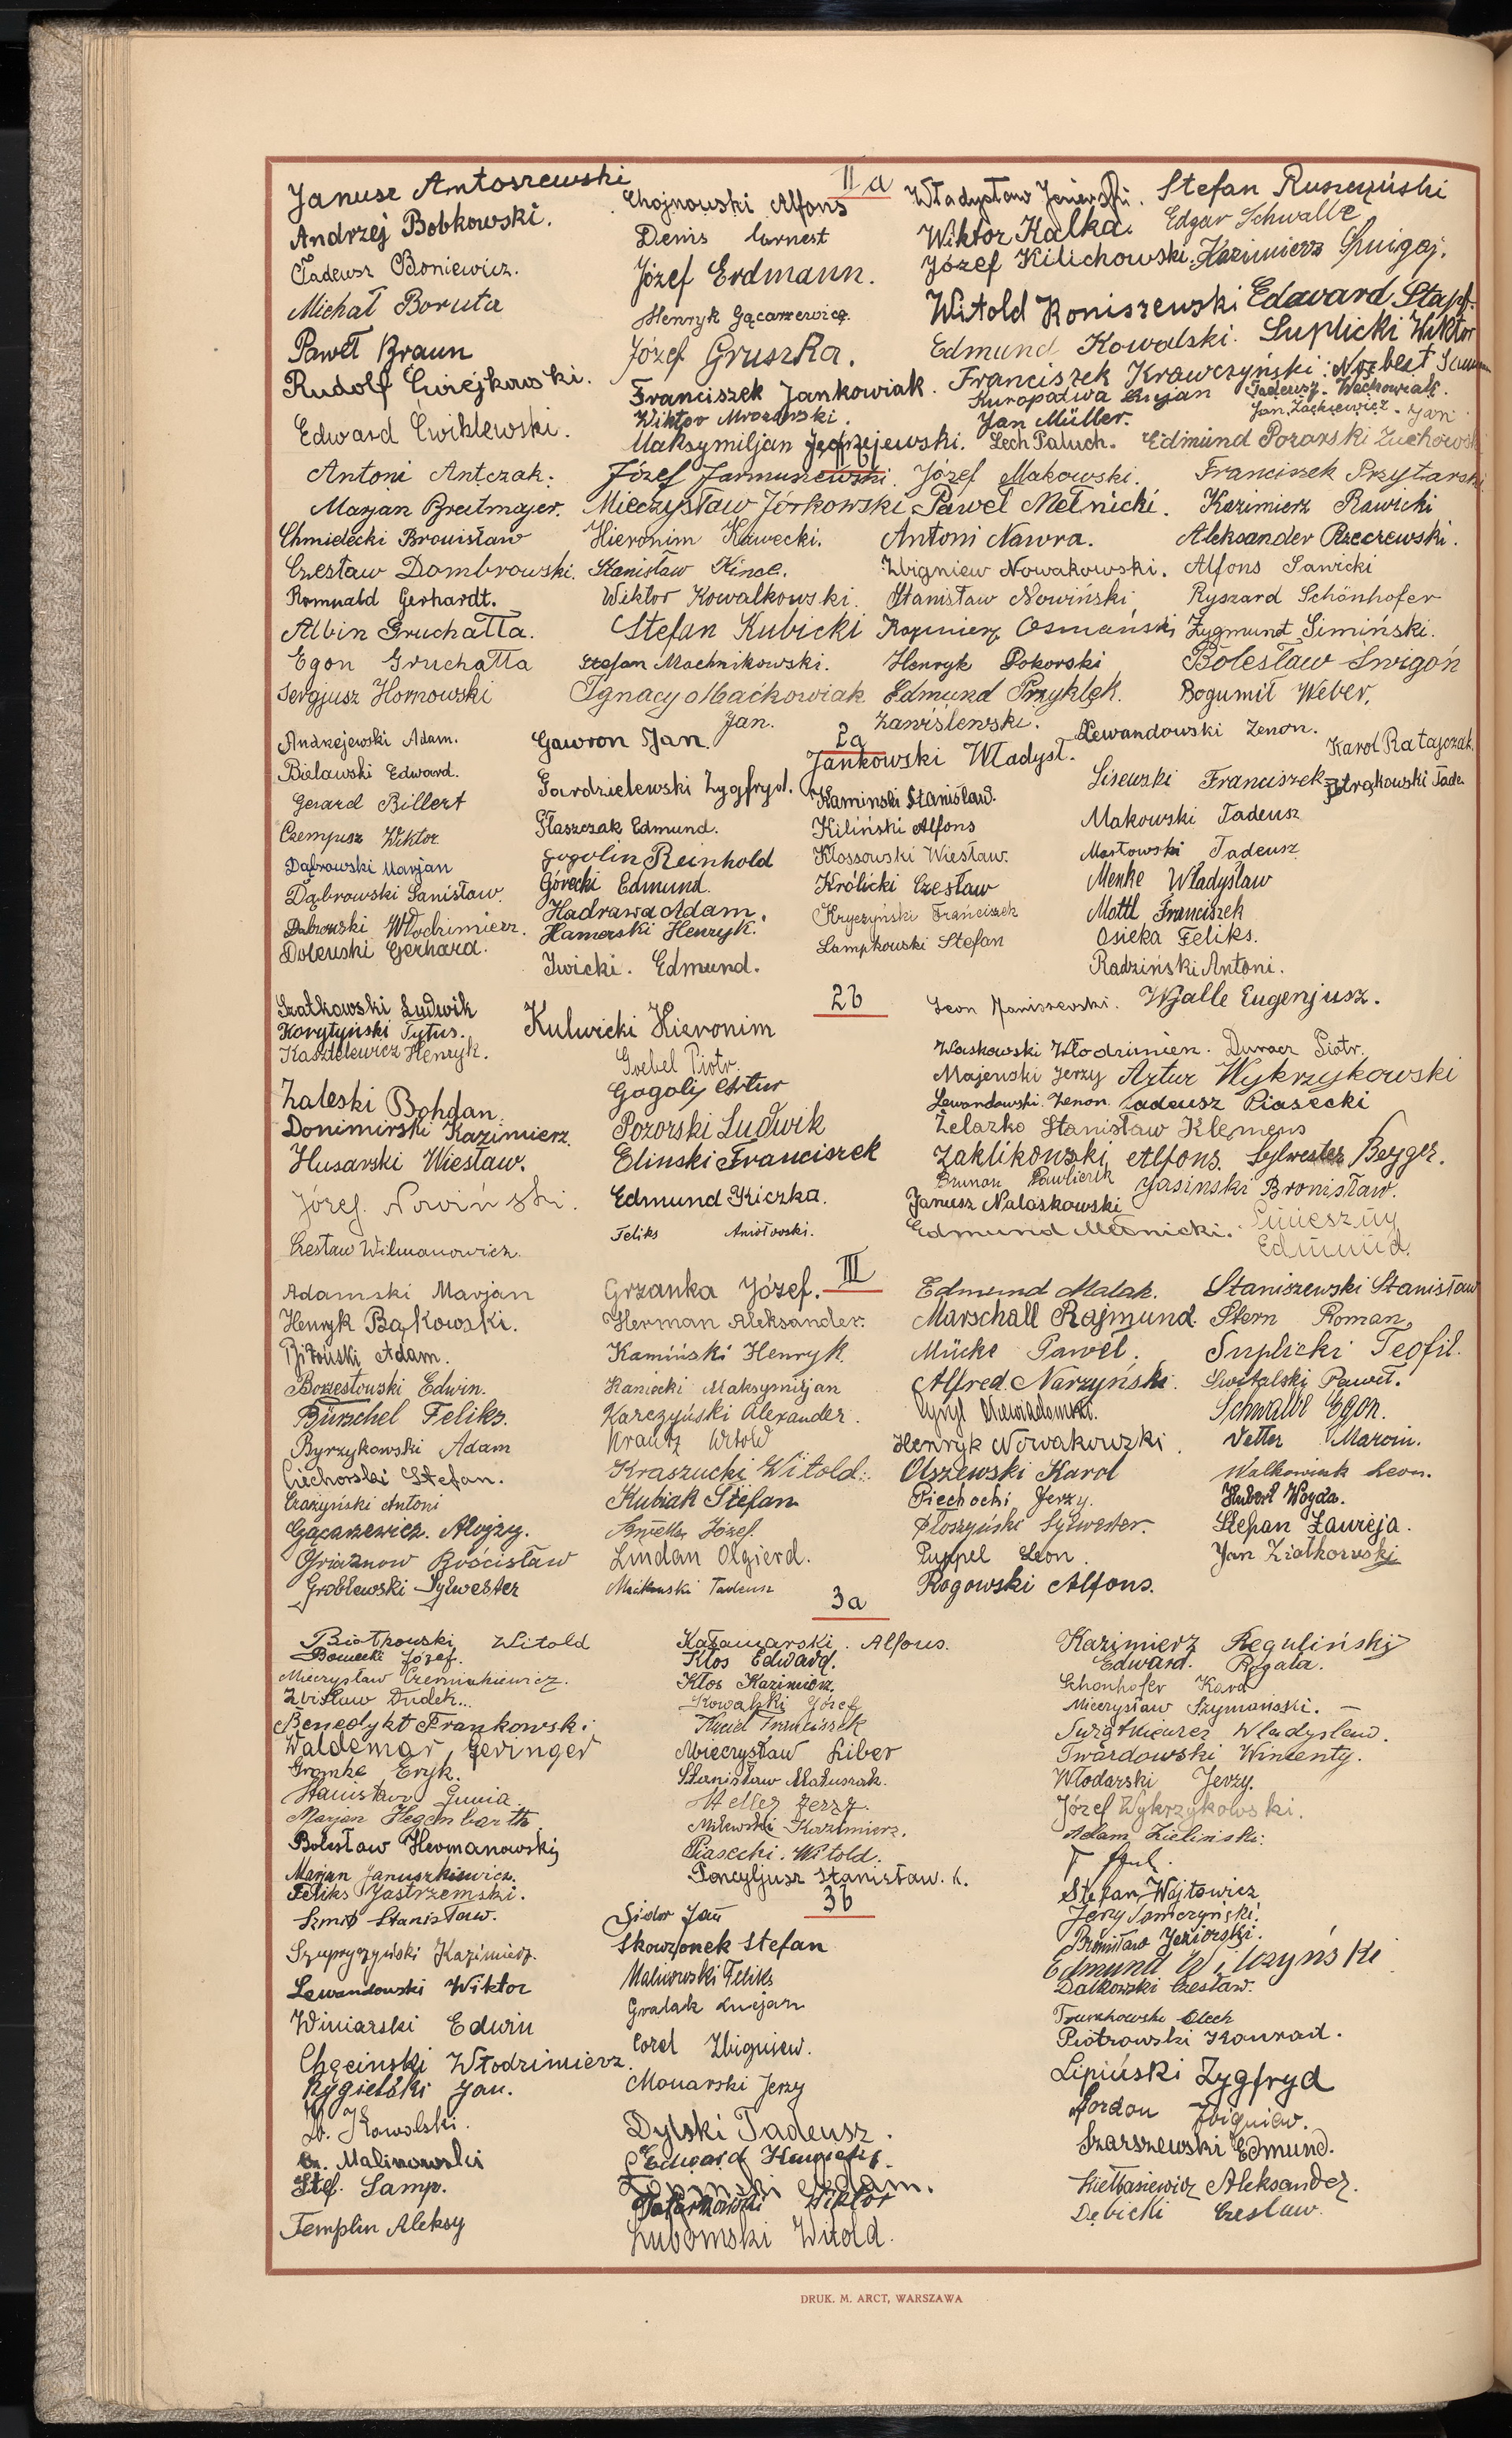 II a
Janusz Antoszewski
Andrzej Bobkowski.
Tadeusz Boniewicz.
Michał Boruta
Paweł Braun
Rudolf Ćwiejkowski.
Edward Ćwiklewski.
Chojnowski Alfons
Denis Ernest
Józef Erdmann.
Henryk Gącarzewicz.
Józef Gruszka.
Franciszek Jankowiak.
Wiktor Mrozowski.
Maksymiljan Jędrzejewski.
Władysław Jezierski.
Wiktor Kalka.
Józef Kilichowski.
Witold Koniszewski
Edmund Kowalski.
Franciszek Krawczyński.
Kuropatwa Lucjan
Jan Müller.
Lech Paluch.
Stefan Ruszczyński
Edgar Schwalbe
Kazimierz Śmigaj.
Edward Stapf.
Suplicki Wiktor
Norbert
Tadeusz Wachowiak.
Jan Zackiewicz. Jan
Edmund Pozarski Żuchowski
Antoni Antczak.
Marjan Breitmajer.
Chmielecki Bronisław
Czesław Dombrowski.
Romuald Gerhardt.
Albin Gruchałła.
Egon Gruchałła
Sergjusz Hornowski
Józef Jarmuszewski.
Mieczysław Jórkowski
Hieronim Kawecki.
Stanisław Kincel.
Wiktor Kowalkowski.
Stefan Kubicki
Stefan Machnikowski.
Ignacy Maćkowiak
Jan.
Józef Makowski.
Paweł Melnicki.
Antoni Nawra.
Zbigniew Nowakowski.
Stanisław Nowiński
Kazimierz Osmański
Henryk Pokorski
Edmund Przyklęk.
Zawiślewski.
Franciszek Przytarski
Kazimierz Rawicki
Aleksander Rzeczewski.
Alfons Sawicki
Ryszard Schönhofer
Zygmunt Simiński.
Bolesław Śmigoń
Bogumił Weber.
2a
Andrzejewski Adam.
Bielawski Edward.
Gerard Billert
Czempisz Wiktor
Dąbrowski Marjan
Dąbrowski Sanisław.
Dabrowski Włodzimierz.
Dolewski Gerhard.
Gawron Jan.
Gardzielewski Zygfryd.
Głaszczak Edmund.
Gogolin Reinhold
Górecki Edmund.
Hadrawa Adam.
Hamerski Henryk.
Iwicki. Edmund.
Jankowski Władysł.
Kamiński Stanisław.
Kiliński Alfons
Kłossowski Wiesław.
Królicki Czesław
Kryczyński Franciszek
Lampkowski Stefan
Lewandowski Zenon.
Lisewski Franciszek
Makowski Tadeusz
Masłowski Tadeusz
Menke Władysław
Mottl Franciszek
Osieka Feliks.
Radziński Antoni.
Karol Ratajczak.
Strąkowski Tade.
2b
Szatkowski Ludwik
Korytyński Tytus.
Kasztelewicz Henryk.
Zaleski Bohdan.
Donimirski Kazimierz.
Husarski Wiesław.
Józef Nowiński.
Czesław Wilmanowicz.
Kulwicki Hieronim
Goebel Piotr.
Gogolij Artur
Pozorski Ludwik
Elinski Franciszek
Edmund Kiczka.
Feliks Aniołowski.
Leon Maniszewski. Wyalle Eugenjusz.
Waskowski Włodzimierz. Duracz Piotr.
Majewski Jerzy Artur Wykrzykowski
Lewandowski. Zenon. Tadeusz Piasecki
Żelazko Stanisław Klemens
Zaklikowski Alfons. Sylwester Beyger.
Brunon Pawlicik Jasinski Bronisław.
Janusz Nalaskowski
Edmund Melnicki.
Edmund.
III
Adamski Marjan
Henryk Bąkowski.
Bitowski Adam.
Borzestowski Edwin.
Bürschel Feliks.
Byrzykowski Adam
Ciechorski Stefan.
Czażyński Antoni
Gącarzewicz. Alojzy.
Griaznow Rościsław
Groblewski Sylwester
Grzanka Józef.
Herman Aleksander.
Kamiński Henryk.
Kaniecki Maksymiljan
Karczyński Alexander.
Krautz Witold
Kraszucki Witold.
Kubiak Stefan
Józef.
Lindan Olgierd.
Maćkowski Tadeusz
Edmund Malak.
Marschall Rajmund.
Mücke Paweł.
Alfred Narzyński.
Cyryl Niewiadomski.
Henryk Nowakowski.
Olszewski Karol
Piechocki Jerzy.
Płoszyński Sylwester.
Puppel Leon.
Rogowski Alfons.
Staniszewski Stanisław
Stern Roman,
Suplicki Teofil.
Świtalski Paweł.
Schwalbe Egon.
Vetter Marcin.
Walkowiak Leon.
Hubert Woyda.
Stefan Zaureja.
Jan Ziółkowski
3a
Białkowski Witold
Bowecki Józef.
Mieczysław Czerniakiewicz.
Zbisław Dudek..
Benedykt Frankowski
Waldemar Geringer
Gromke Eryk.
Stanisław Gunia.
Marjan Hegenbarth
Bolesław Hermanowski
Marjan Januszkiewicz.
Feliks Jastrzemski.
Kałamarski. Alfons.
Kłos Edward.
Kłos Kazimierz.
Kowalski Józef
Kuciel Franciszek
Mieczysław Liber
Stanisław Matuszak.
Meller Jerzy.
Milewski Kazimierz.
Piasecki. Witold.
Poncyljusz Stanisław. K.
Kazimierz Reguliński
Edward. Rogala.
Schonhofer Karol
Mieczysław Szymański. —
Świątkiewicz Władysław.
Twardowski Wincenty.
Włodarski Jerzy.
Józef Wykrzykowski.
Adam Zieliński.
3b
Szmit Stanisław.
Szupryczyński Kazimierz.
Lewandowski Wiktor
Winiarski Edwin
Chęcinski Włodzimierz.
Rygielski Jan.
Zb. Kowalski.
Cz. Malinowski
Stef. Samp.
Templin Aleksy
Sidor Jan
Skowronek Stefan
Malinowski Feliks
Gralak Lucjan
Corel Zbigniew.
Monarski Jerzy
Dylski Tadeusz.
Edward
Łopiński Adam.
Wiktor
Lubomski Witold.
Stefan Wójtowicz
Jerzy Samczyński.
Bronisław Jeziorski.
Edmund Wilczyński
Dalkowski Czesław.
Truszkowski Olech
Piotrowski Konrad.
Lipiński Zygfryd
Gordon Zbigniew.
Szarszewski Edmund.
Kiełbasiewicz Aleksander.
Dębicki Czesław.
DRUK. M. ARCT, WARSZAWA